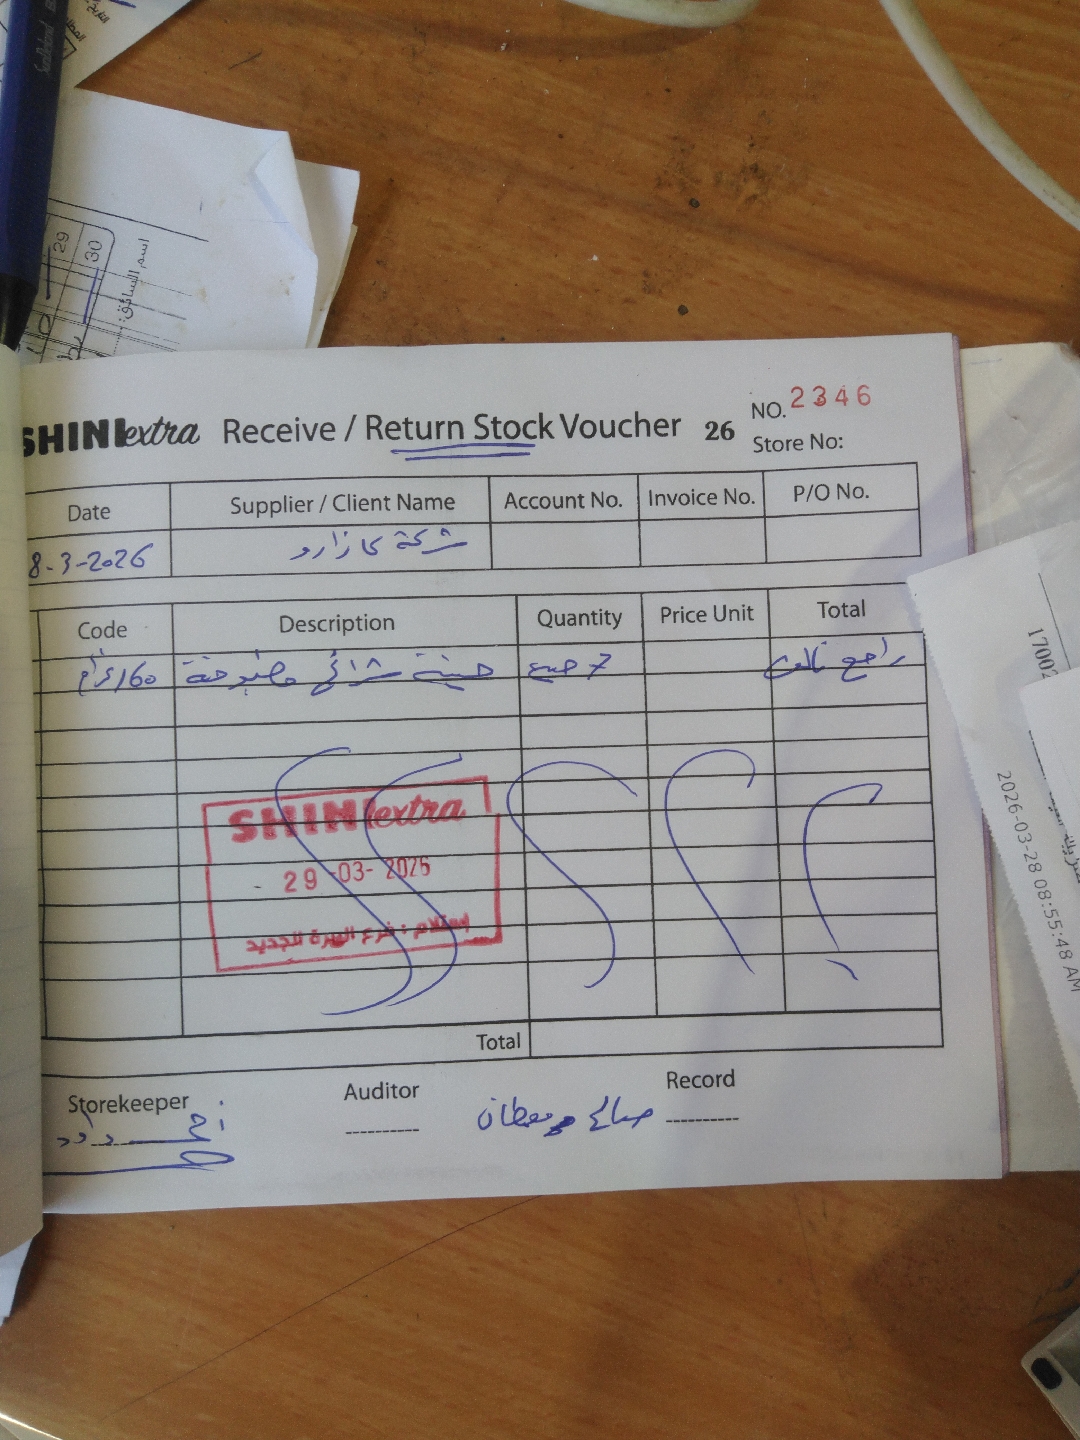 SHINIextra Receive / Return Stock Voucher 26
NO. 2346
Store No:
Date Supplier / Client Name Account No. Invoice No. P/O No.
8-3-2026 شركة كازارو
Code Description Quantity Price Unit Total
160 جرام جبنة شرائح مطبوخة 7 راجع تالف
SHINIextra
29-03-2026
استلام : فرع
Total
Storekeeper Auditor Record
صالح رمضان
29
30
اسم السائق:
17002
2026-03-28 08:55:48 AM